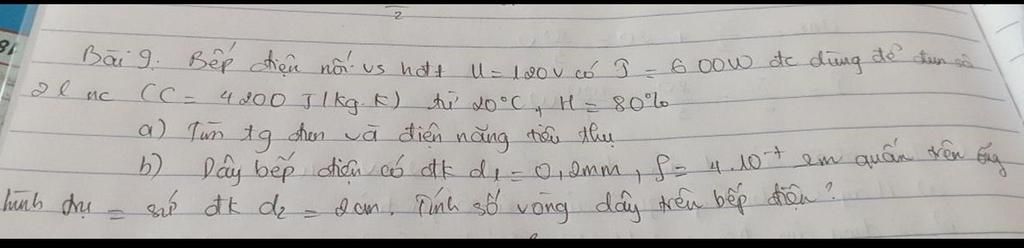 2
81
Bài 9. Bếp điện nối vs hđt U = 120V có P = 600W đc dùng để đun sôi
2l nc (C = 4200 J/(kg.K) từ 20°C, H = 80%
a) Tìm tg đun và điện năng tiêu thụ
b) Dây bếp điện có đk d1 = 0,2mm, ρ = 4.10⁻⁷ Ωm quấn trên ống
hình trụ = sứ đk d2 = 2cm. Tính số vòng dây trên bếp điện?